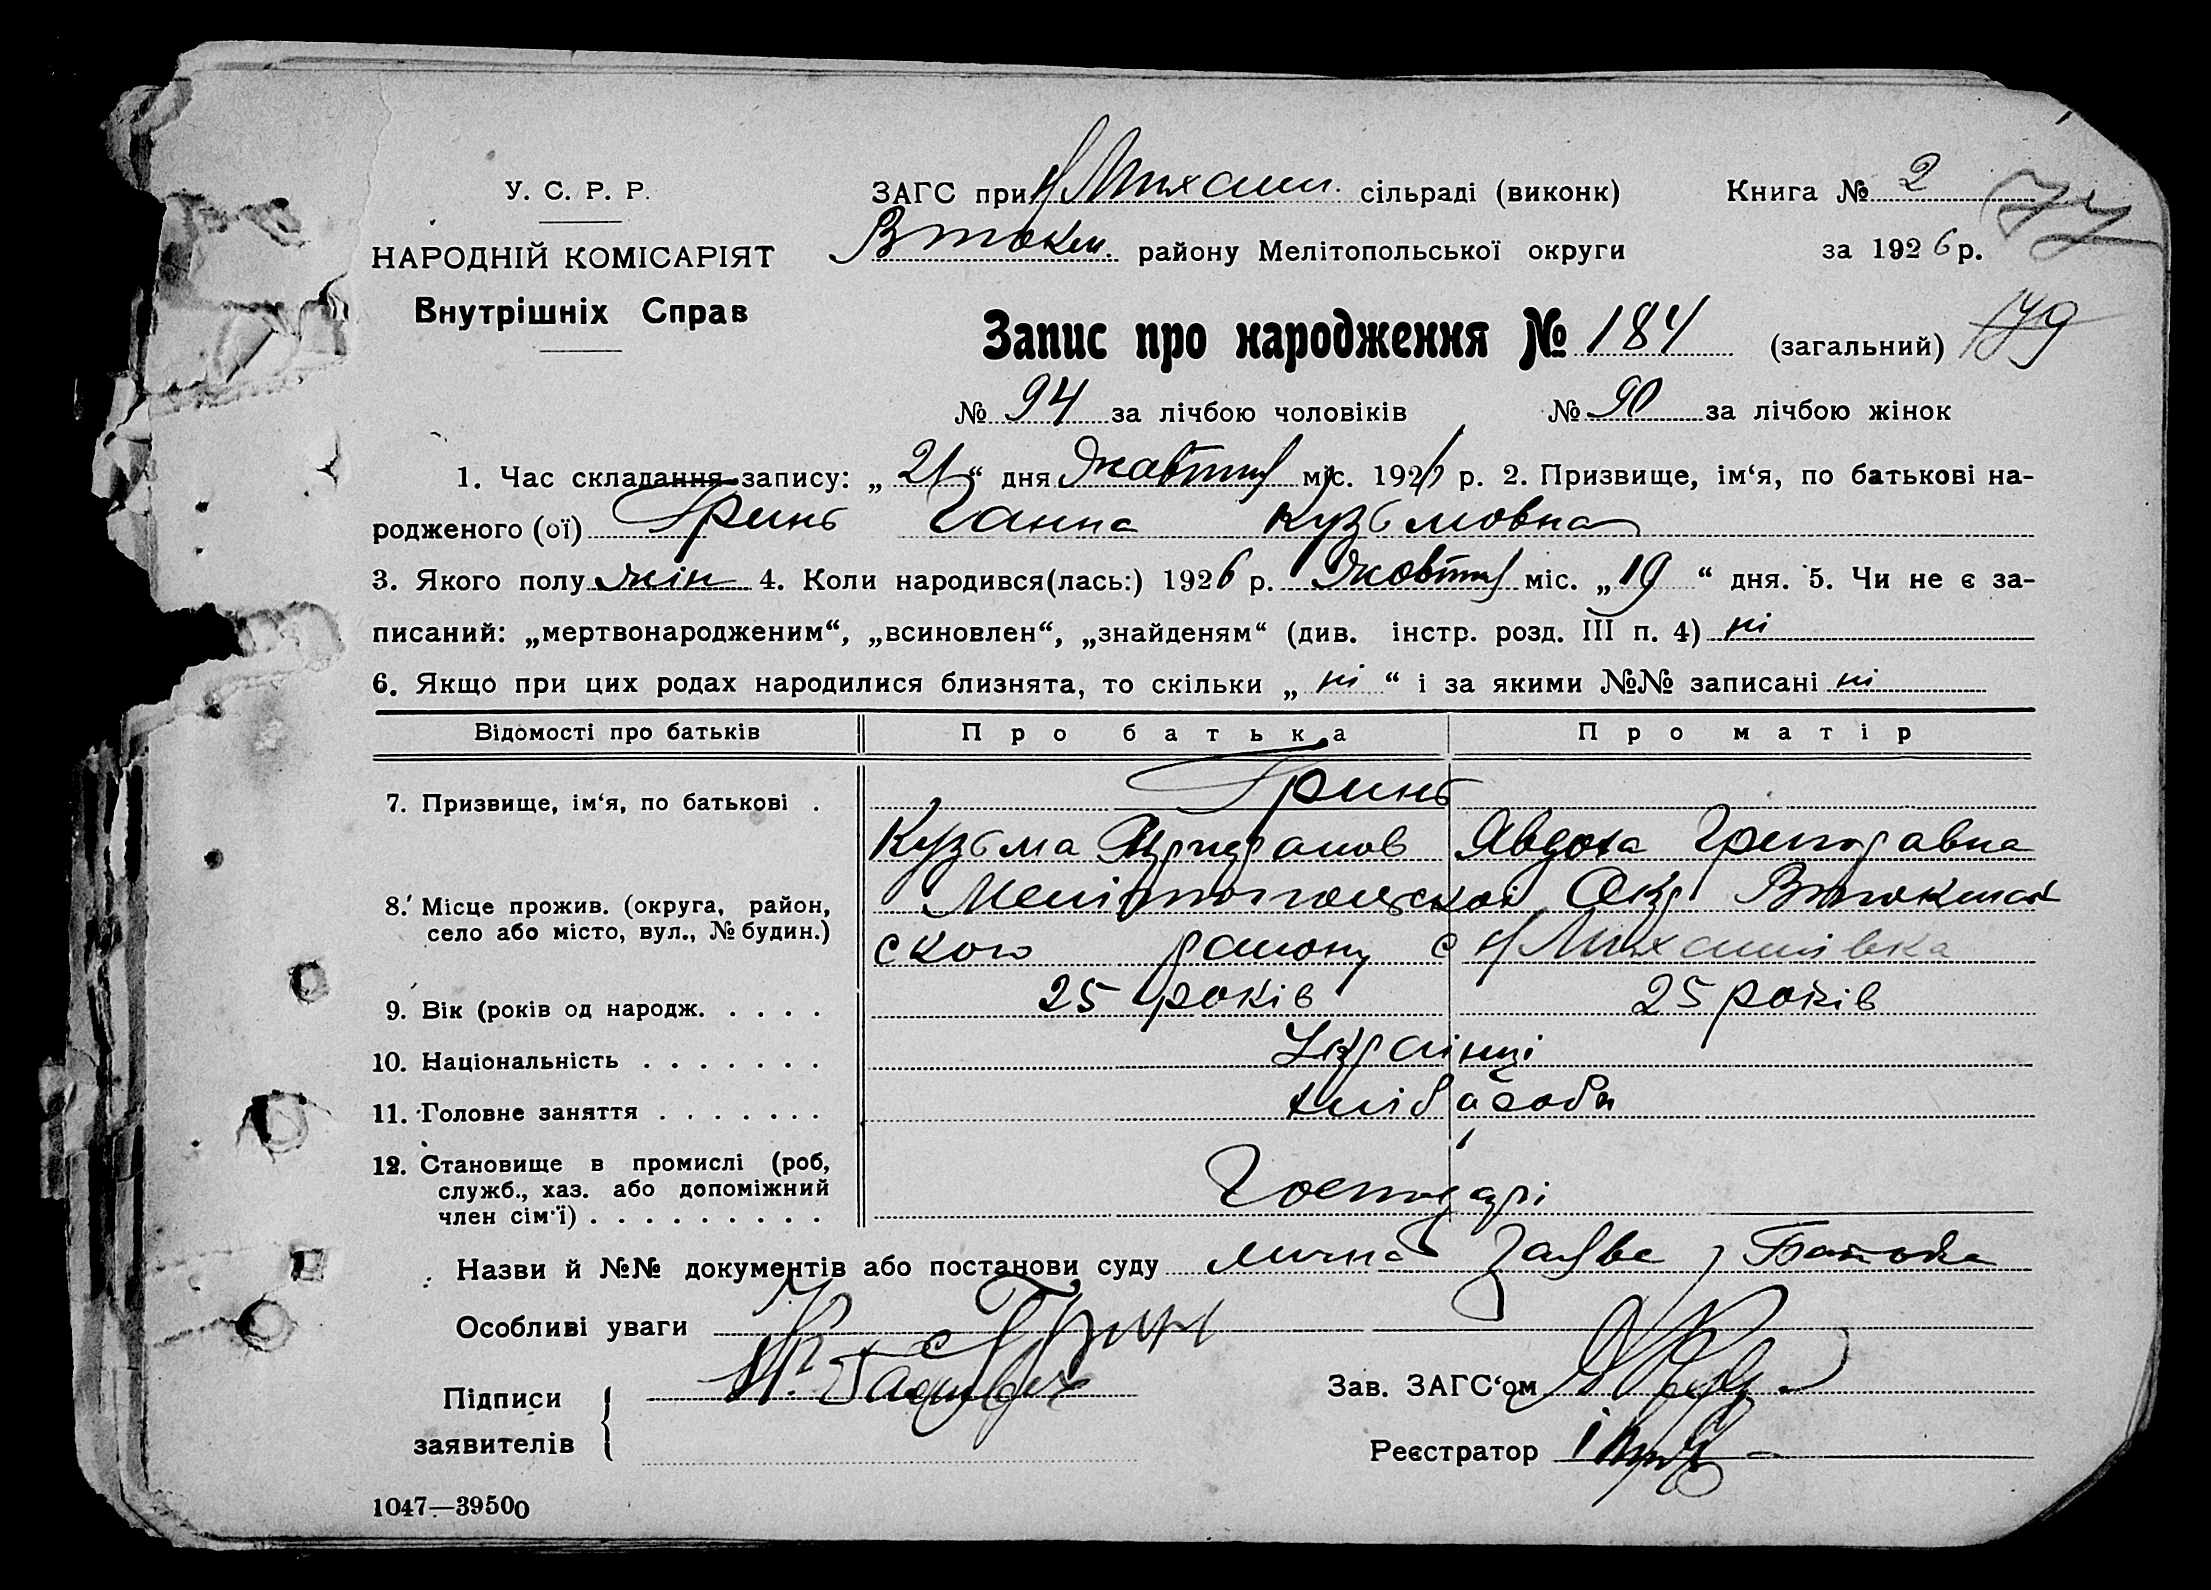 У. С. Р. Р.
НАРОДНІЙ КОМІСАРІЯТ
Внутрішніх Справ
ЗАГС при Н Михайл. сільраді (виконк)
Втокм. району Мелітопольської округи
Книга № 2
за 1926 р.
77
179
Запис про народження № 184 (загальний)
№ 94 за лічбою чоловіків № 90 за лічбою жінок
1. Час складання запису: „ 21 “ дня Жовтня міс. 1926 р. 2. Призвище, ім‘я, по батькові на-
родженого (ої) Гринь Ганна Кузьмовна
3. Якого полу жін 4. Коли народився(лась:) 1926 р. Жовтня міс. „ 19 “ дня. 5. Чи не є за-
писаний: „мертвонародженим“, „всиновлен“, „знайденям“ (див. інстр. розд. III п. 4) ні
6. Якщо при цих родах народилися близнята, то скільки „ ні “ і за якими №№ записані ні
Відомості про батьків Про батька Про матір
7. Призвище, ім‘я, по батькові . Гринь
Кузьма Явдоха Григоравна
8. Місце прожив. (округа, район,
село або місто, вул., № будин.)
Мелітопольскоі Окр Втокмак
ского району с Н Михайлівка
9. Вік (років од народж. . . . . 25 років 25 років
10. Національність . . . . . . . Українці
11. Головне заняття . . . . . . . хлібороби
12. Становище в промислі (роб,
служб., хаз. або допоміжний
член сім‘ї) . . . . . . . . . Господарі
Назви й №№ документів або постанови суду лична Заява Батька
Особливі уваги
Підписи
заявителів
К Грин
Зав. ЗАГС‘ом
Реєстратор
1047—39500